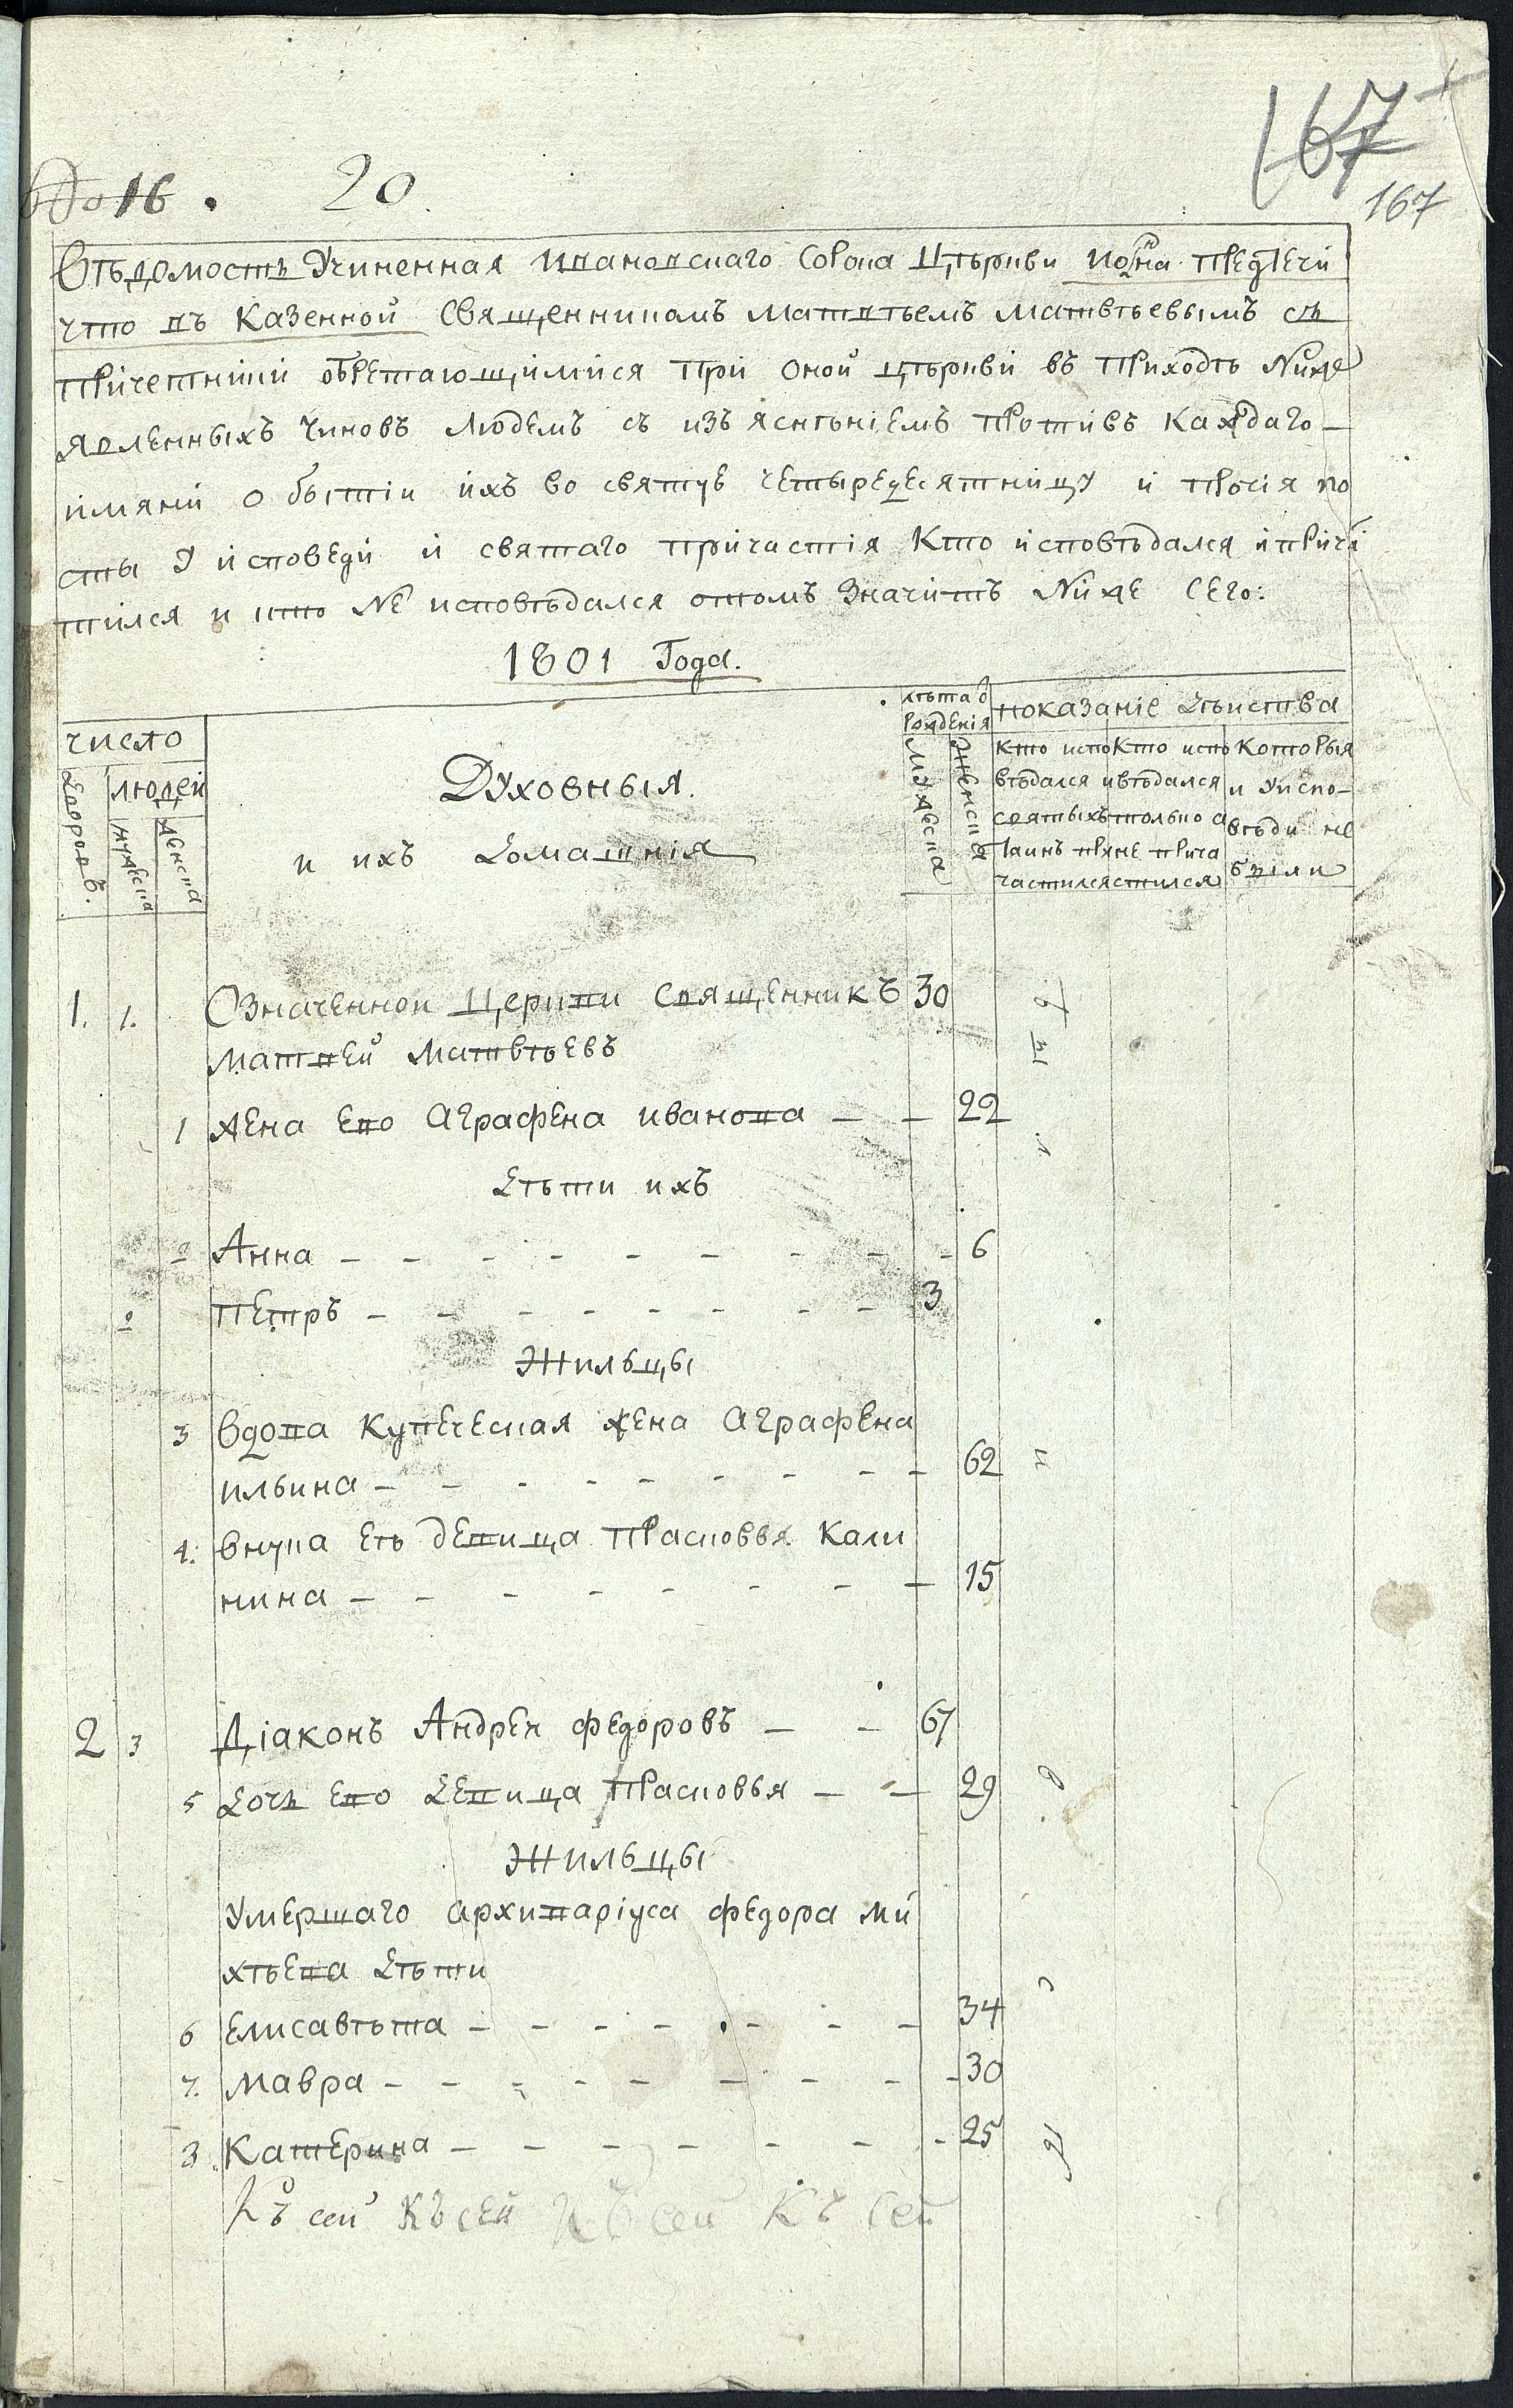 № 16. 20
167
167
Вѣдомость Учиненная Ивановскаго Сорока Цѣркви Иоанна Предтечи
что въ Казенной Священникомъ Матвѣемъ Матвѣевымъ съ
причетники обретающимися при оной цѣркви въ приходѣ Ниже
явленныхъ чиновъ людемъ съ изъяснѣниемъ противъ каждаго
имяни о бытіи ихъ во святуе четыредесятницу и прочія по
сты У исповеди и святаго причастія Кто исповѣдался и прича
тился и кто не исповѣдался отомъ Значитъ Ниже Сего:
1801 Года.
число
дворовъ.
людей
мужеска
женска
Духовныя.
и ихъ домашнія
лѣта от рожденія
мужеска
женска
показаніе дѣйства
кто исповѣдался и святыхъ Таинъ причастился
Кто исповѣдался только а не причастился
Которыя и У исповѣди не были
1. 1. Означеннои Церкви священникъ 30
Матвей Матвѣевъ
1 жена ево Аграфена иванова — — 22
Дѣти ихъ
2 Анна — 6
2 Петръ — 3
Жильцы
3 вдова купеческая жена Аграфена
ильина — 62
4. внука еѣ девица Прасковья Кали
нина — 15
2 3 Діаконъ Андреи Федоровъ — — 67
5 дочь ево девица Прасковья — — 29
Жильцы
Умершаго архиваріуса Федора Ми
хѣева дѣти
6 Елисавѣта — 34
7. Мавра — 30
8. Катерина — 25
Къ сей Къ сей Къ сей Къ сей